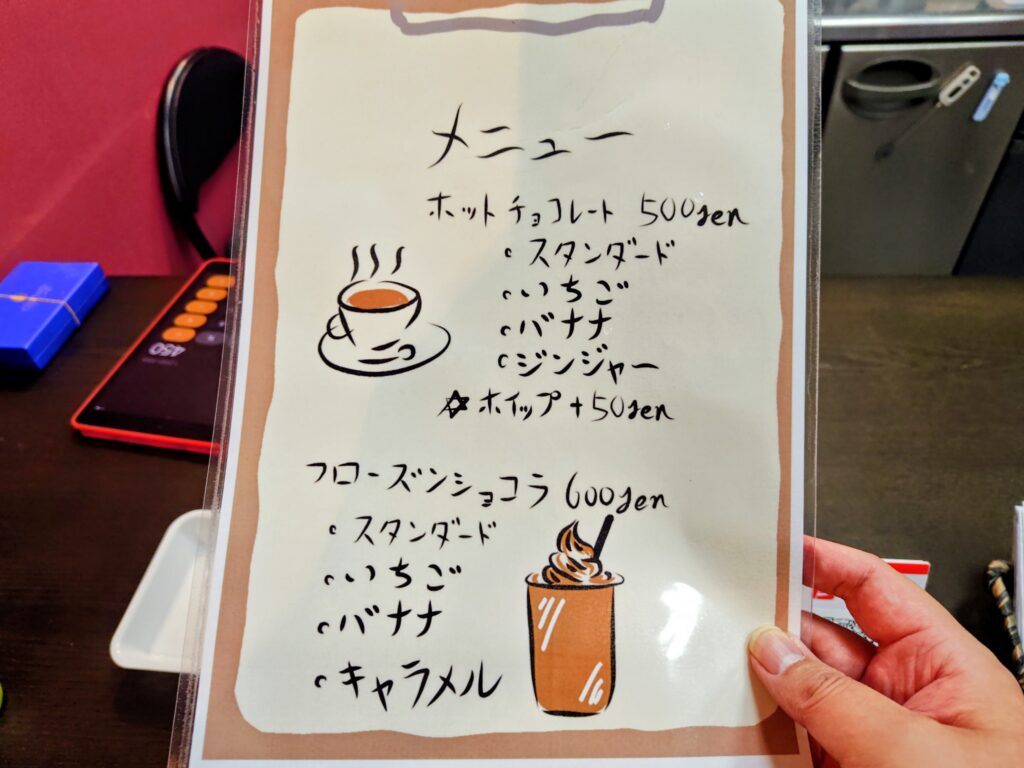 メニュー
ホットチョコレート 500yen
• スタンダード
• いちご
• バナナ
• ジンジャー
☆ ホイップ +50yen
フローズンショコラ 600yen
• スタンダード
• いちご
• バナナ
• キャラメル
450